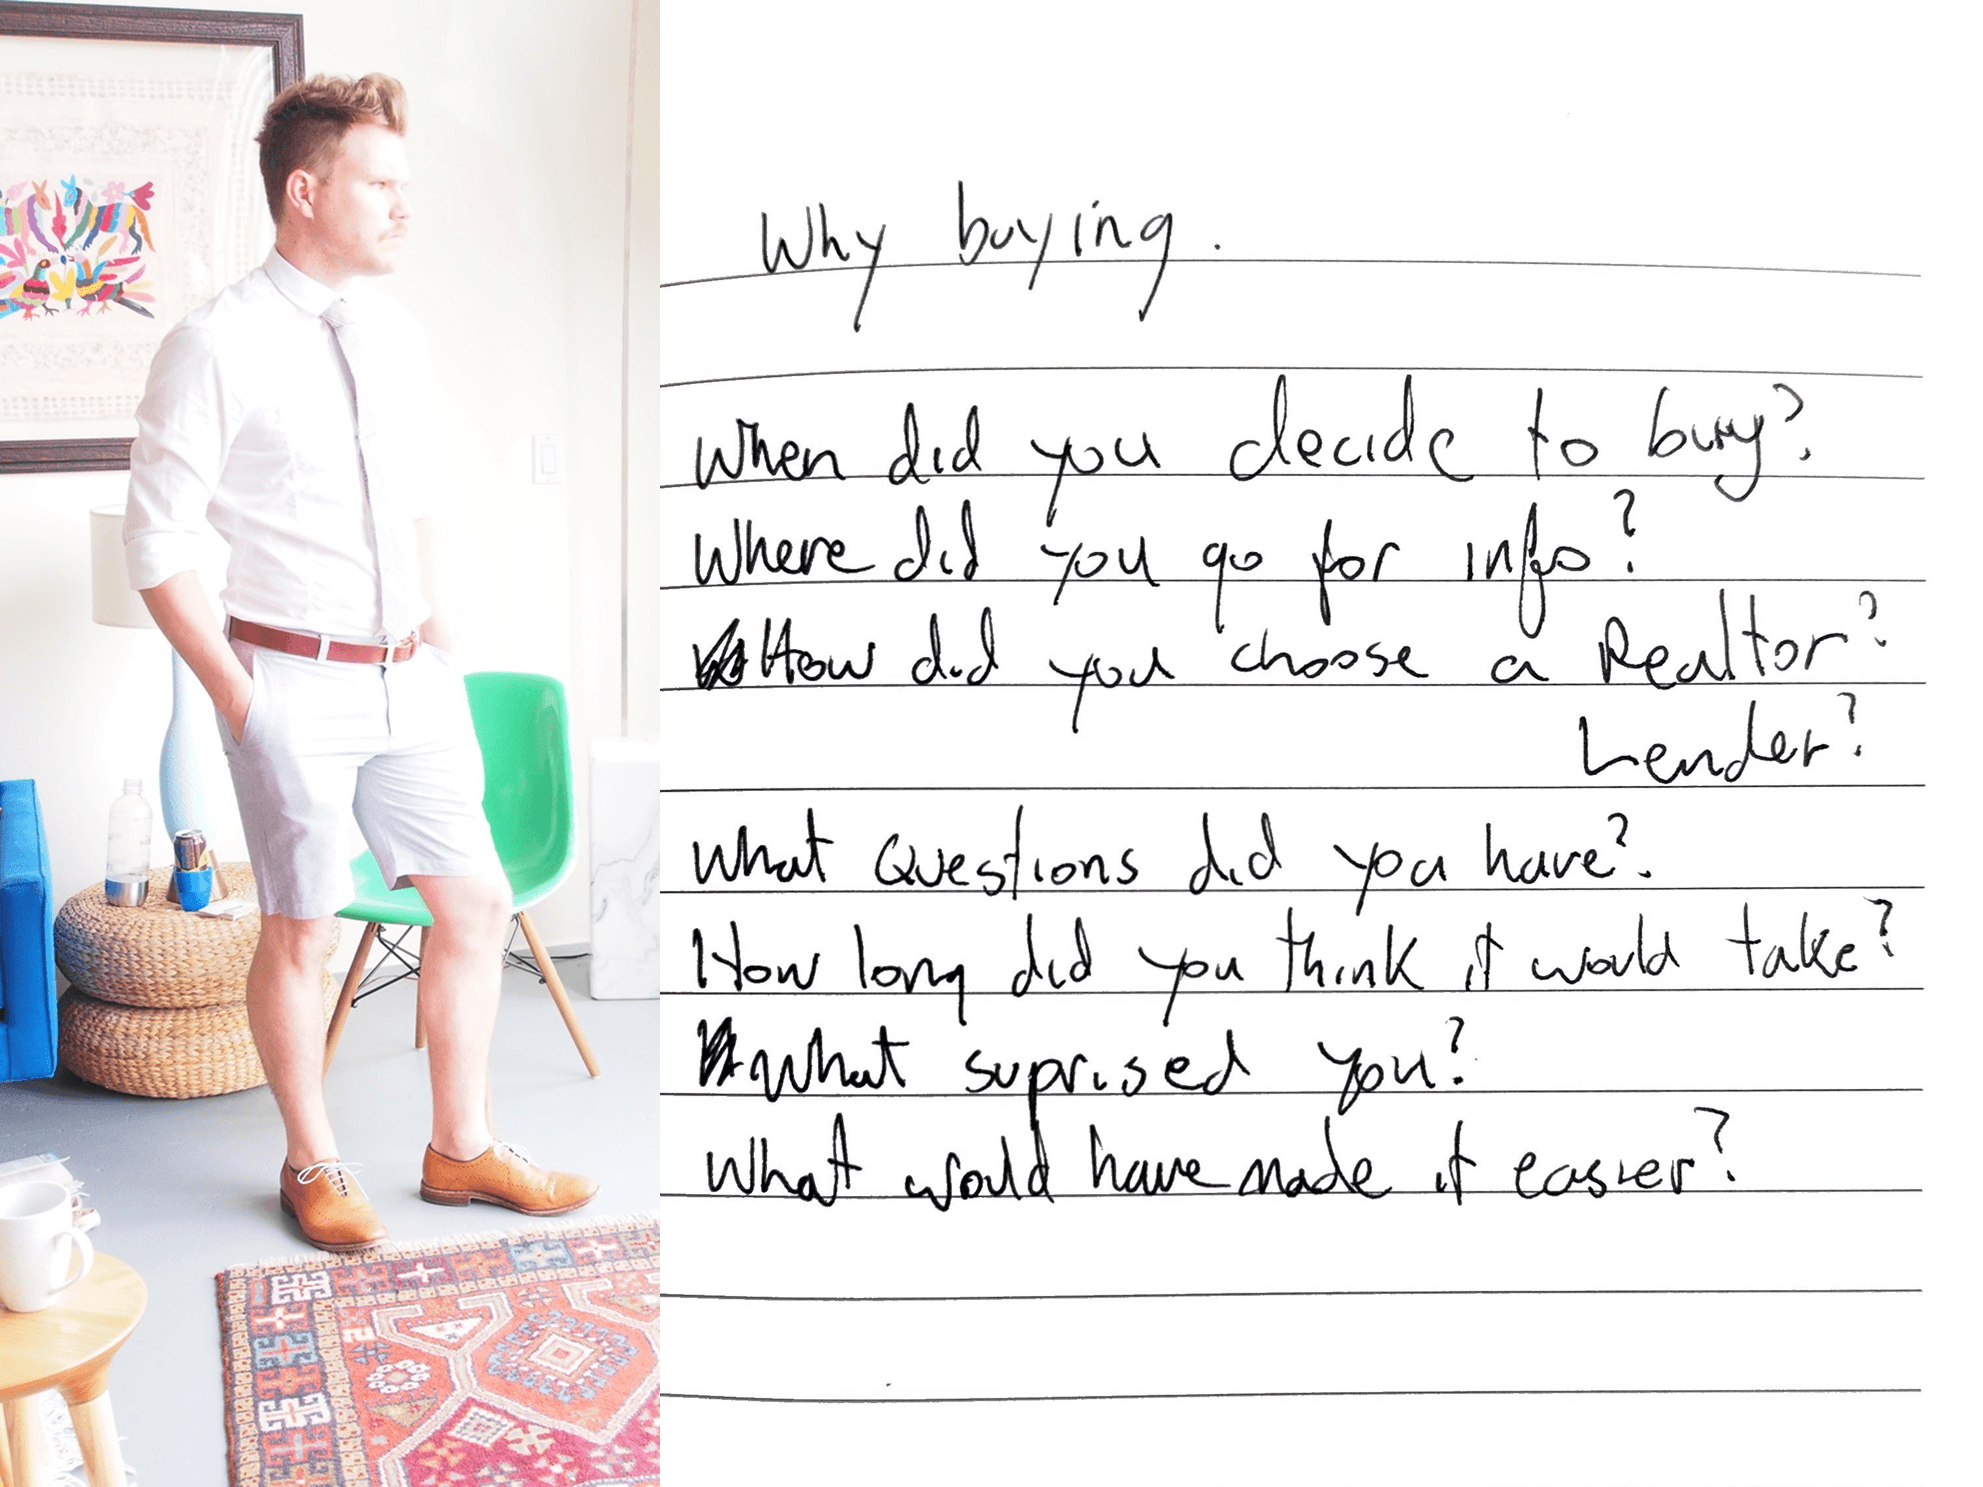 Why buying.
When did you decide to buy?
Where did you go for info?
How did you choose a Realtor?
Lender?
What Questions did you have?
How long did you think it would take?
What suprised you?
What would have made it easier?